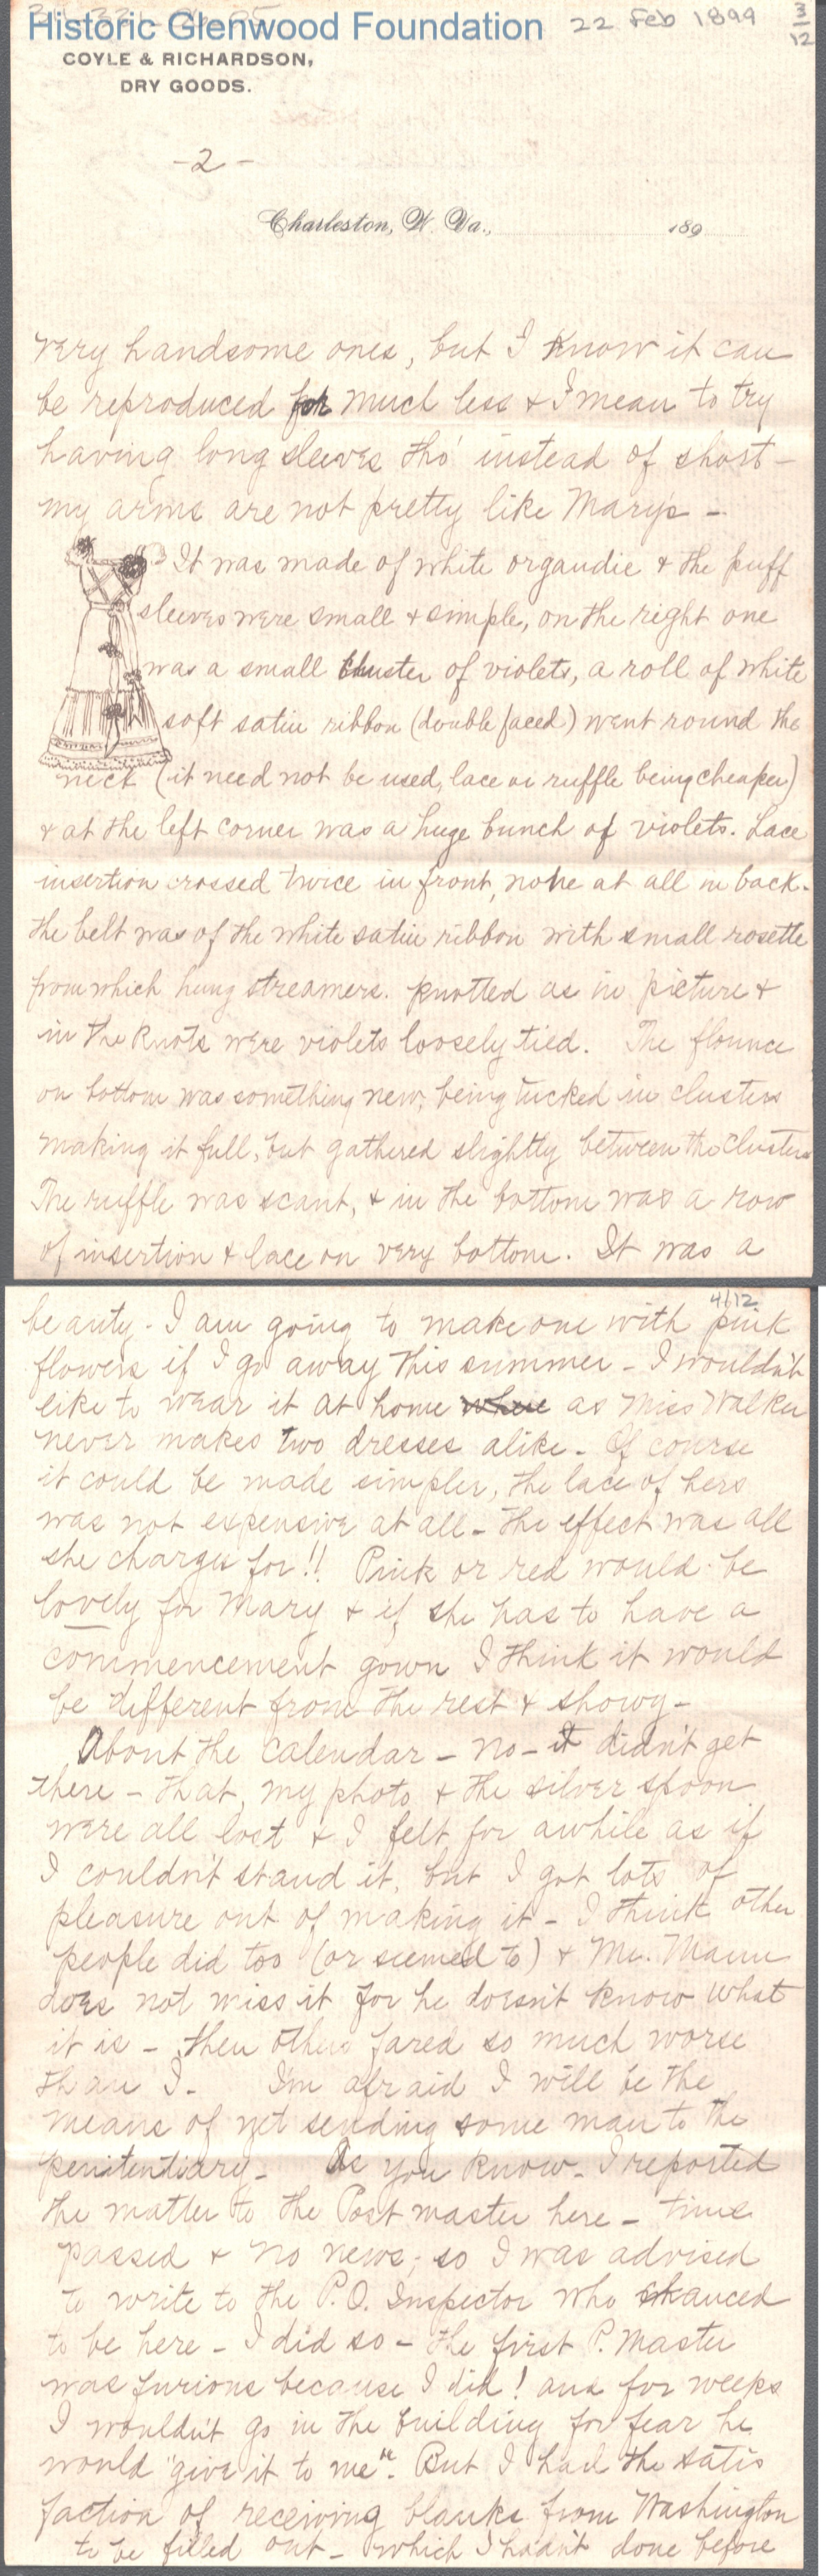 Historic Glenwood Foundation
22 Feb 1899
3/12
COYLE & RICHARDSON,
DRY GOODS.
-2-
Charleston, W. Va., 189
very handsome ones, but I know it can
be reproduced for much less & I mean to try
having long sleeves tho' instead of short -
my arms are not pretty like Mary's -
It was made of white organdie & the puff
sleeves were small & simple, on the right one
was a small cluster of violets, a roll of white
soft satin ribbon (double faced) went round the
neck (it need not be used, lace or ruffle being cheaper)
& at the left corner was a huge bunch of violets. Lace
insertion crossed twice in front, none at all in back.
the belt was of the white satin ribbon with small rosette
from which hung streamers. knotted as in picture &
in the knots were violets loosely tied. The flounce
on bottom was something new, being tucked in clusters
making it full, but gathered slightly between the clusters
The ruffle was scant, & in the bottom was a row
of insertion & lace on very bottom. It was a
4/12
beauty - I am going to make one with pink
flowers if I go away this summer - I wouldn't
like to wear it at home where as Miss Walker
never makes two dresses alike - Of course
it could be made simpler, the lace of hers
was not expensive at all - the effect was all
she charges for!! Pink or red would be
lovely for Mary & if she has to have a
commencement gown I think it would
be different from the rest & showy -
About the calendar - no - it didn't get
there - that, my photo & the silver spoon
were all lost & I felt for awhile as if
I couldn't stand it, but I got lots of
pleasure out of making it - I think other
people did too (or seemed to) & Mr. Mann
does not miss it for he doesn't know what
it is - then others fared so much worse
than I - I'm afraid I will be the
means of yet sending some man to the
penitentiary - As you know - I reported
the matter to the Post master here - time
passed & no news; so I was advised
to write to the P.O. Inspector who chanced
to be here - I did so - the first P. Master
was furious because I did! and for weeks
I wouldn't go in the building for fear he
would "give it to me". But I had the satis
faction of receiving blanks from Washington
to be filled out - which I hadn't done before